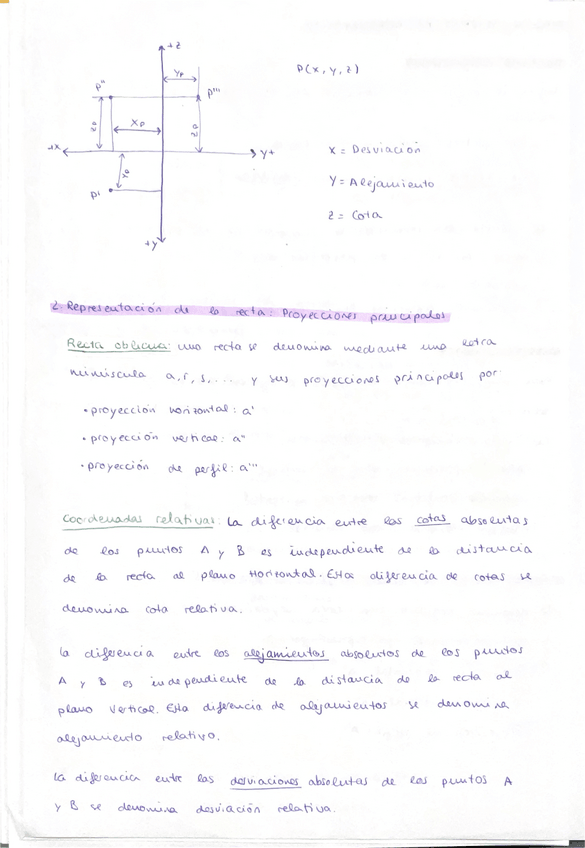 +z
P(x, y, z)
YP
P''
P'''
XP
zP
zP
+x
Y+
YP
P'
+y
x = Desviación
Y = Alejamiento
z = Cota
2. Representación de la recta: Proyecciones principales
Recta oblicua: una recta se denomina mediante una letra
minúscula a, r, s, ... y sus proyecciones principales por:
• proyección horizontal: a'
• proyección vertical: a''
• proyección de perfil: a'''
Coordenadas relativas: La diferencia entre las cotas absolutas
de los puntos A y B es independiente de la distancia
de la recta al plano Horizontal. Esta diferencia de cotas se
denomina cota relativa.
La diferencia entre los alejamientos absolutos de los puntos
A y B es independiente de la distancia de la recta al
plano vertical. Esta diferencia de alejamientos se denomina
alejamiento relativo.
La diferencia entre las desviaciones absolutas de los puntos A
y B se denomina desviación relativa.